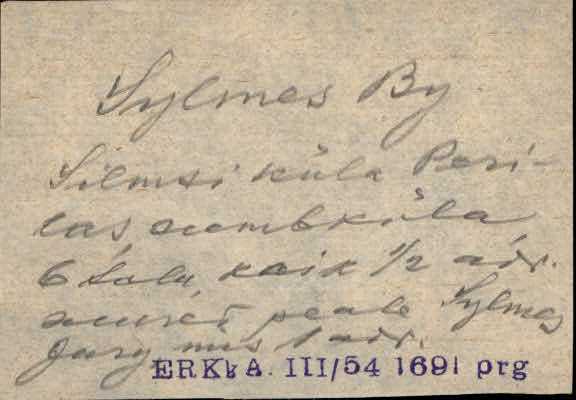 Sylmes By
Silmsi küla Peri-
las, sumbküla,
6 talu, kõik 1/2 adr.
suured peale Sylmes
Jürg mis 1 adr.
ERKkA. III/54 1691 prg